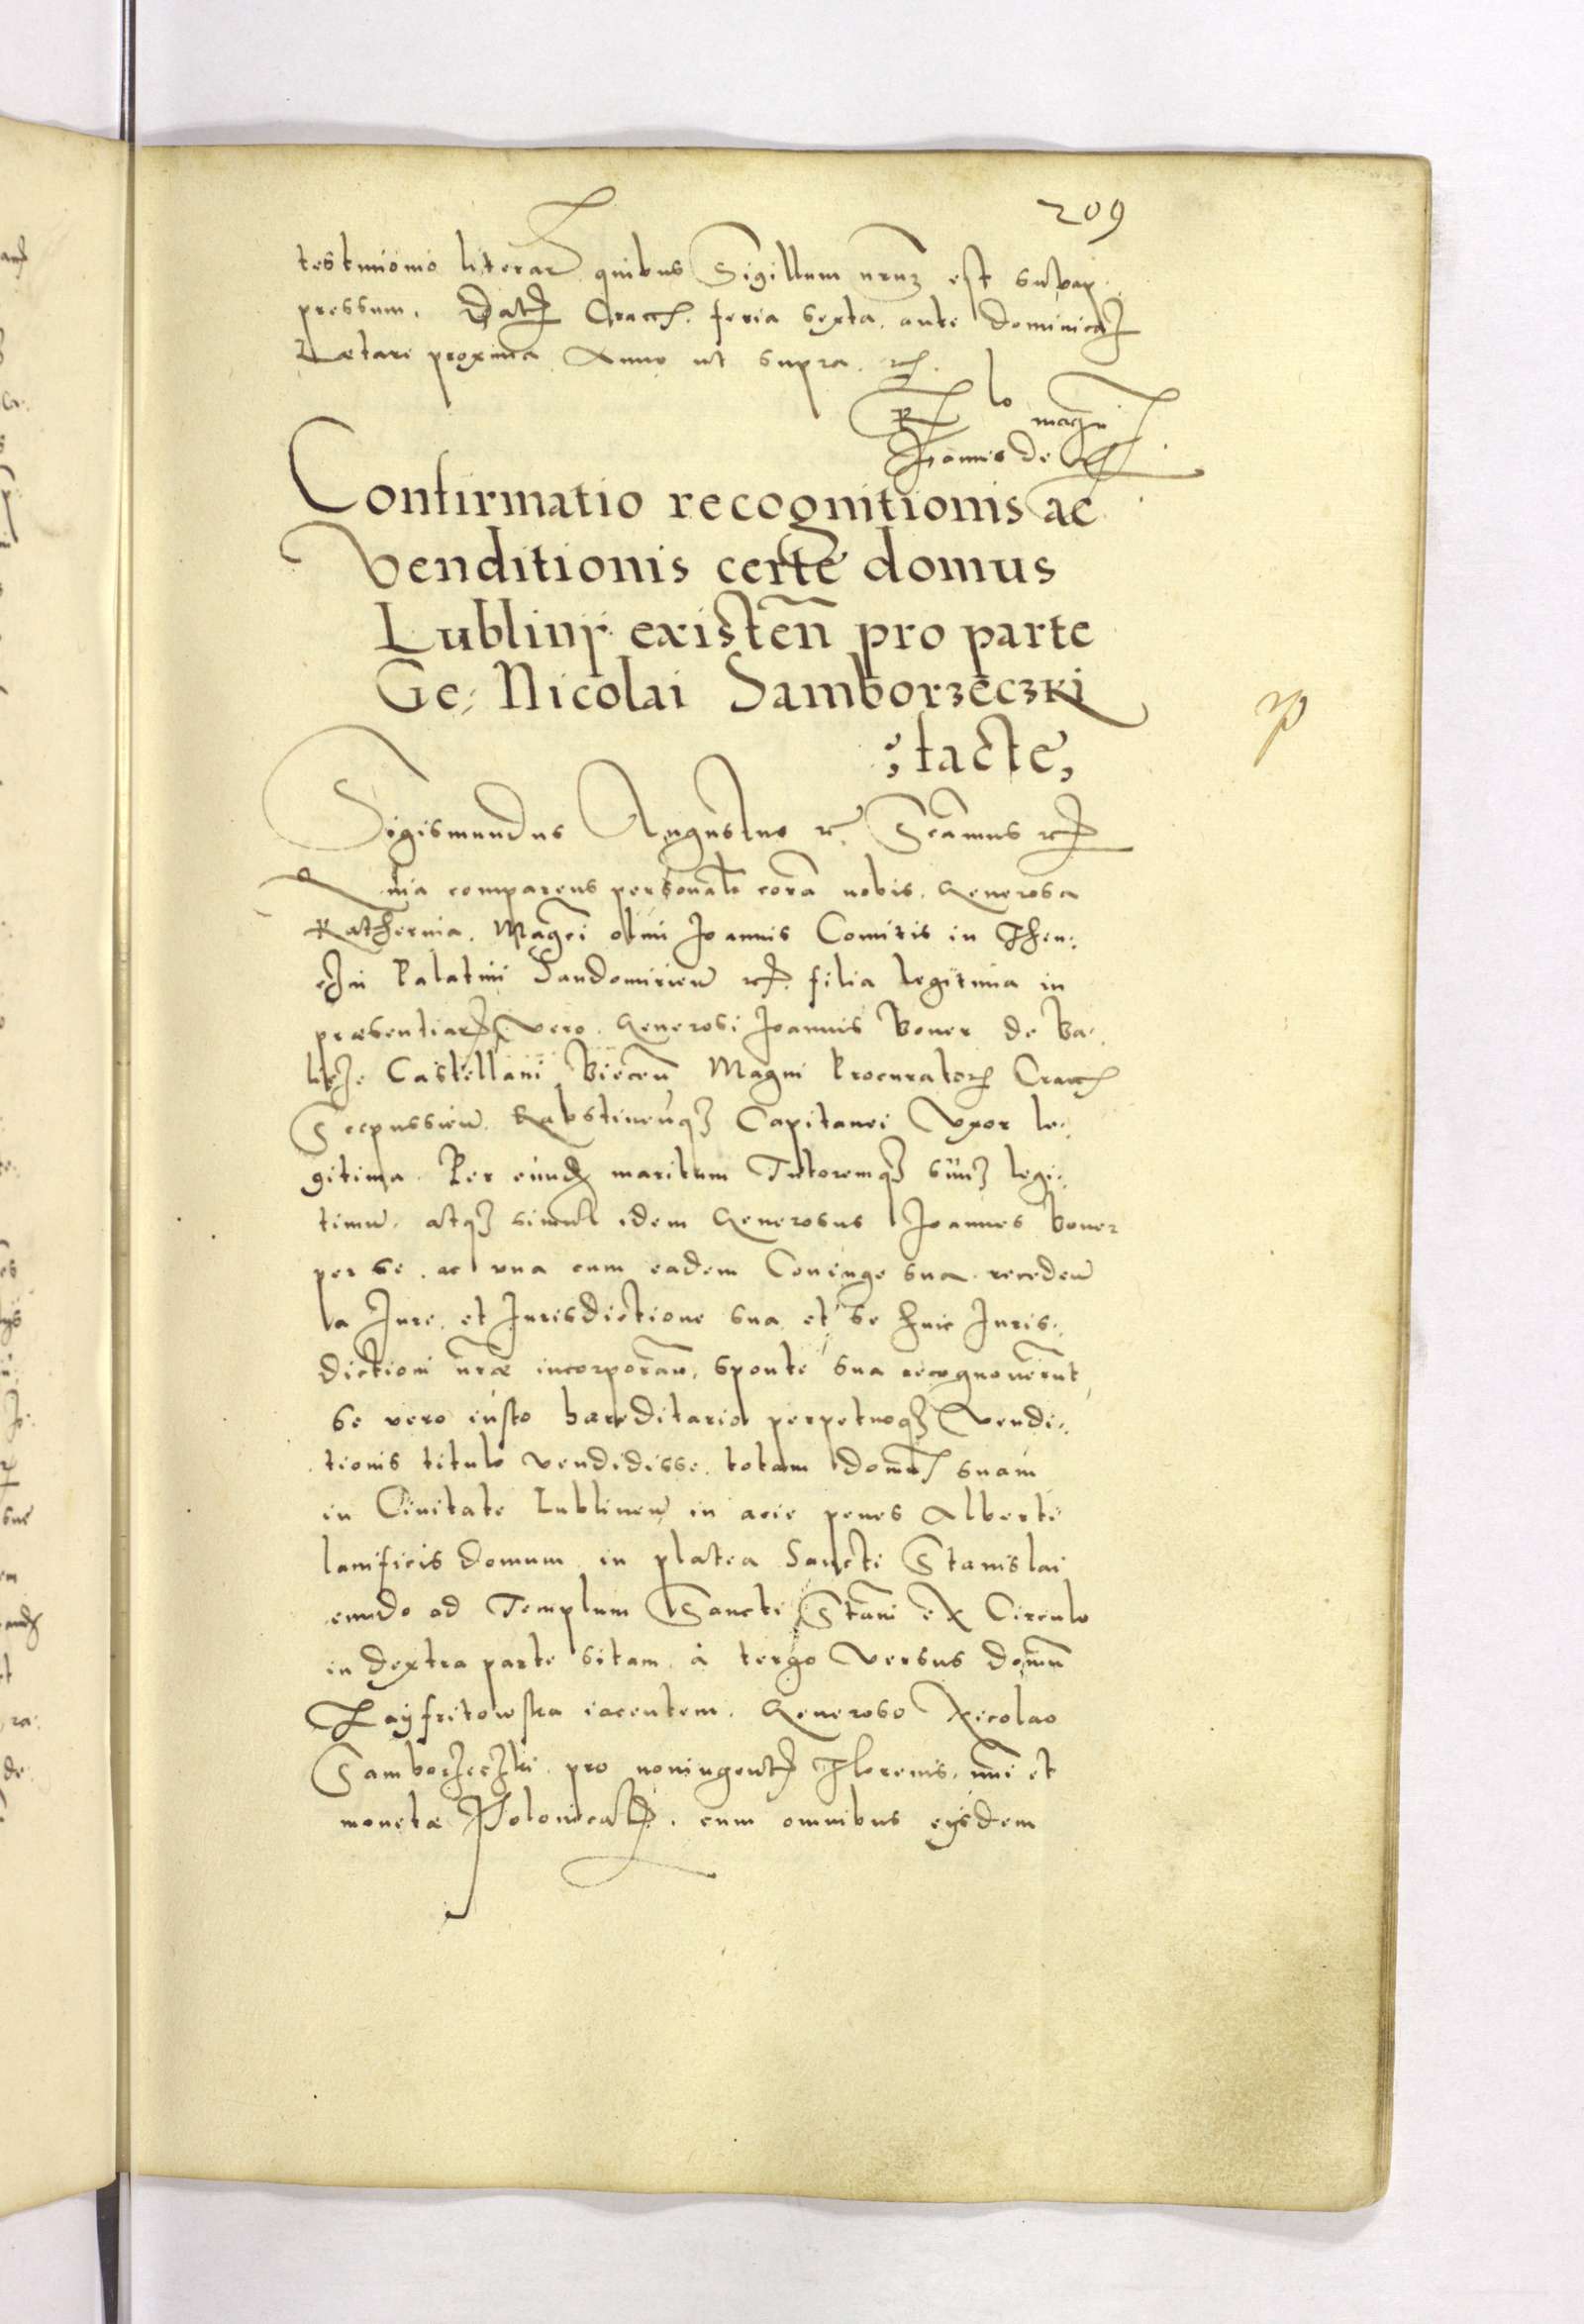 209
testimonio literar quibus Sigillum nrum est subap
pressum. Dat Cracc. feria sexta ante Dominica
Lætari proxima Anno ut supra.
R lo magci
Joannis de
Confirmatio recognitionis ac
Venditionis certe domus
Lublinij existen pro parte
Ge: Nicolai Samborzeczki
facte,
Sigismundus Augustus Scamus
Quia comparens personalr cora nobis Generosa
Katherina Magci olim Joannis Comitis in Then:
czin Palatini Sandomirien filia legitima in
præsentiar vero Generosi Joannis Boner de Ba:
licze Castellani Biecen Magni Procurator Cracc
Scepussien Rabstinenqz Capitanei Uxor le:
gitima Per eund maritum Tutoremqz suum legi:
timu. atqz simul idem Generosus Joannes Boner
per se ac una cum eadem Coniuge sua receden
a Jure et Jurisdictione sua et se huic Juris:
dictioni nræ incorporan. sponte sua recognouerunt
se vero iusto hæreditario perpetuoqz Vendi:
tionis titulo vendidisse totam domu suam
in Ciuitate Lublinen in acie penes Alberti
lanificis domum in platea Sancti Stanislai
eundo ad Templum Sancti Stani ex Circulo
in dextra parte sitam à tergo versus domu
iacentem. Generoso Nicolao
Samborzeczki pro noningent Florenis nri et
monetæ Polonical. cum omnibus eiusdem